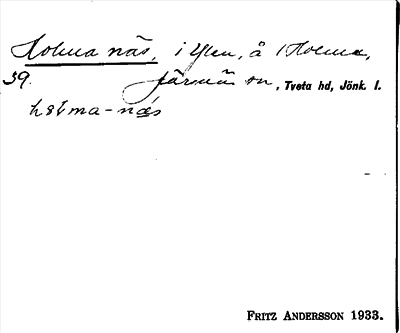 Holma näs, i Ylen, å 1 Holma,
39.
Järsnäs sn, Tveta hd, Jönk. l.
-näs
FRITZ ANDERSSON 1933.